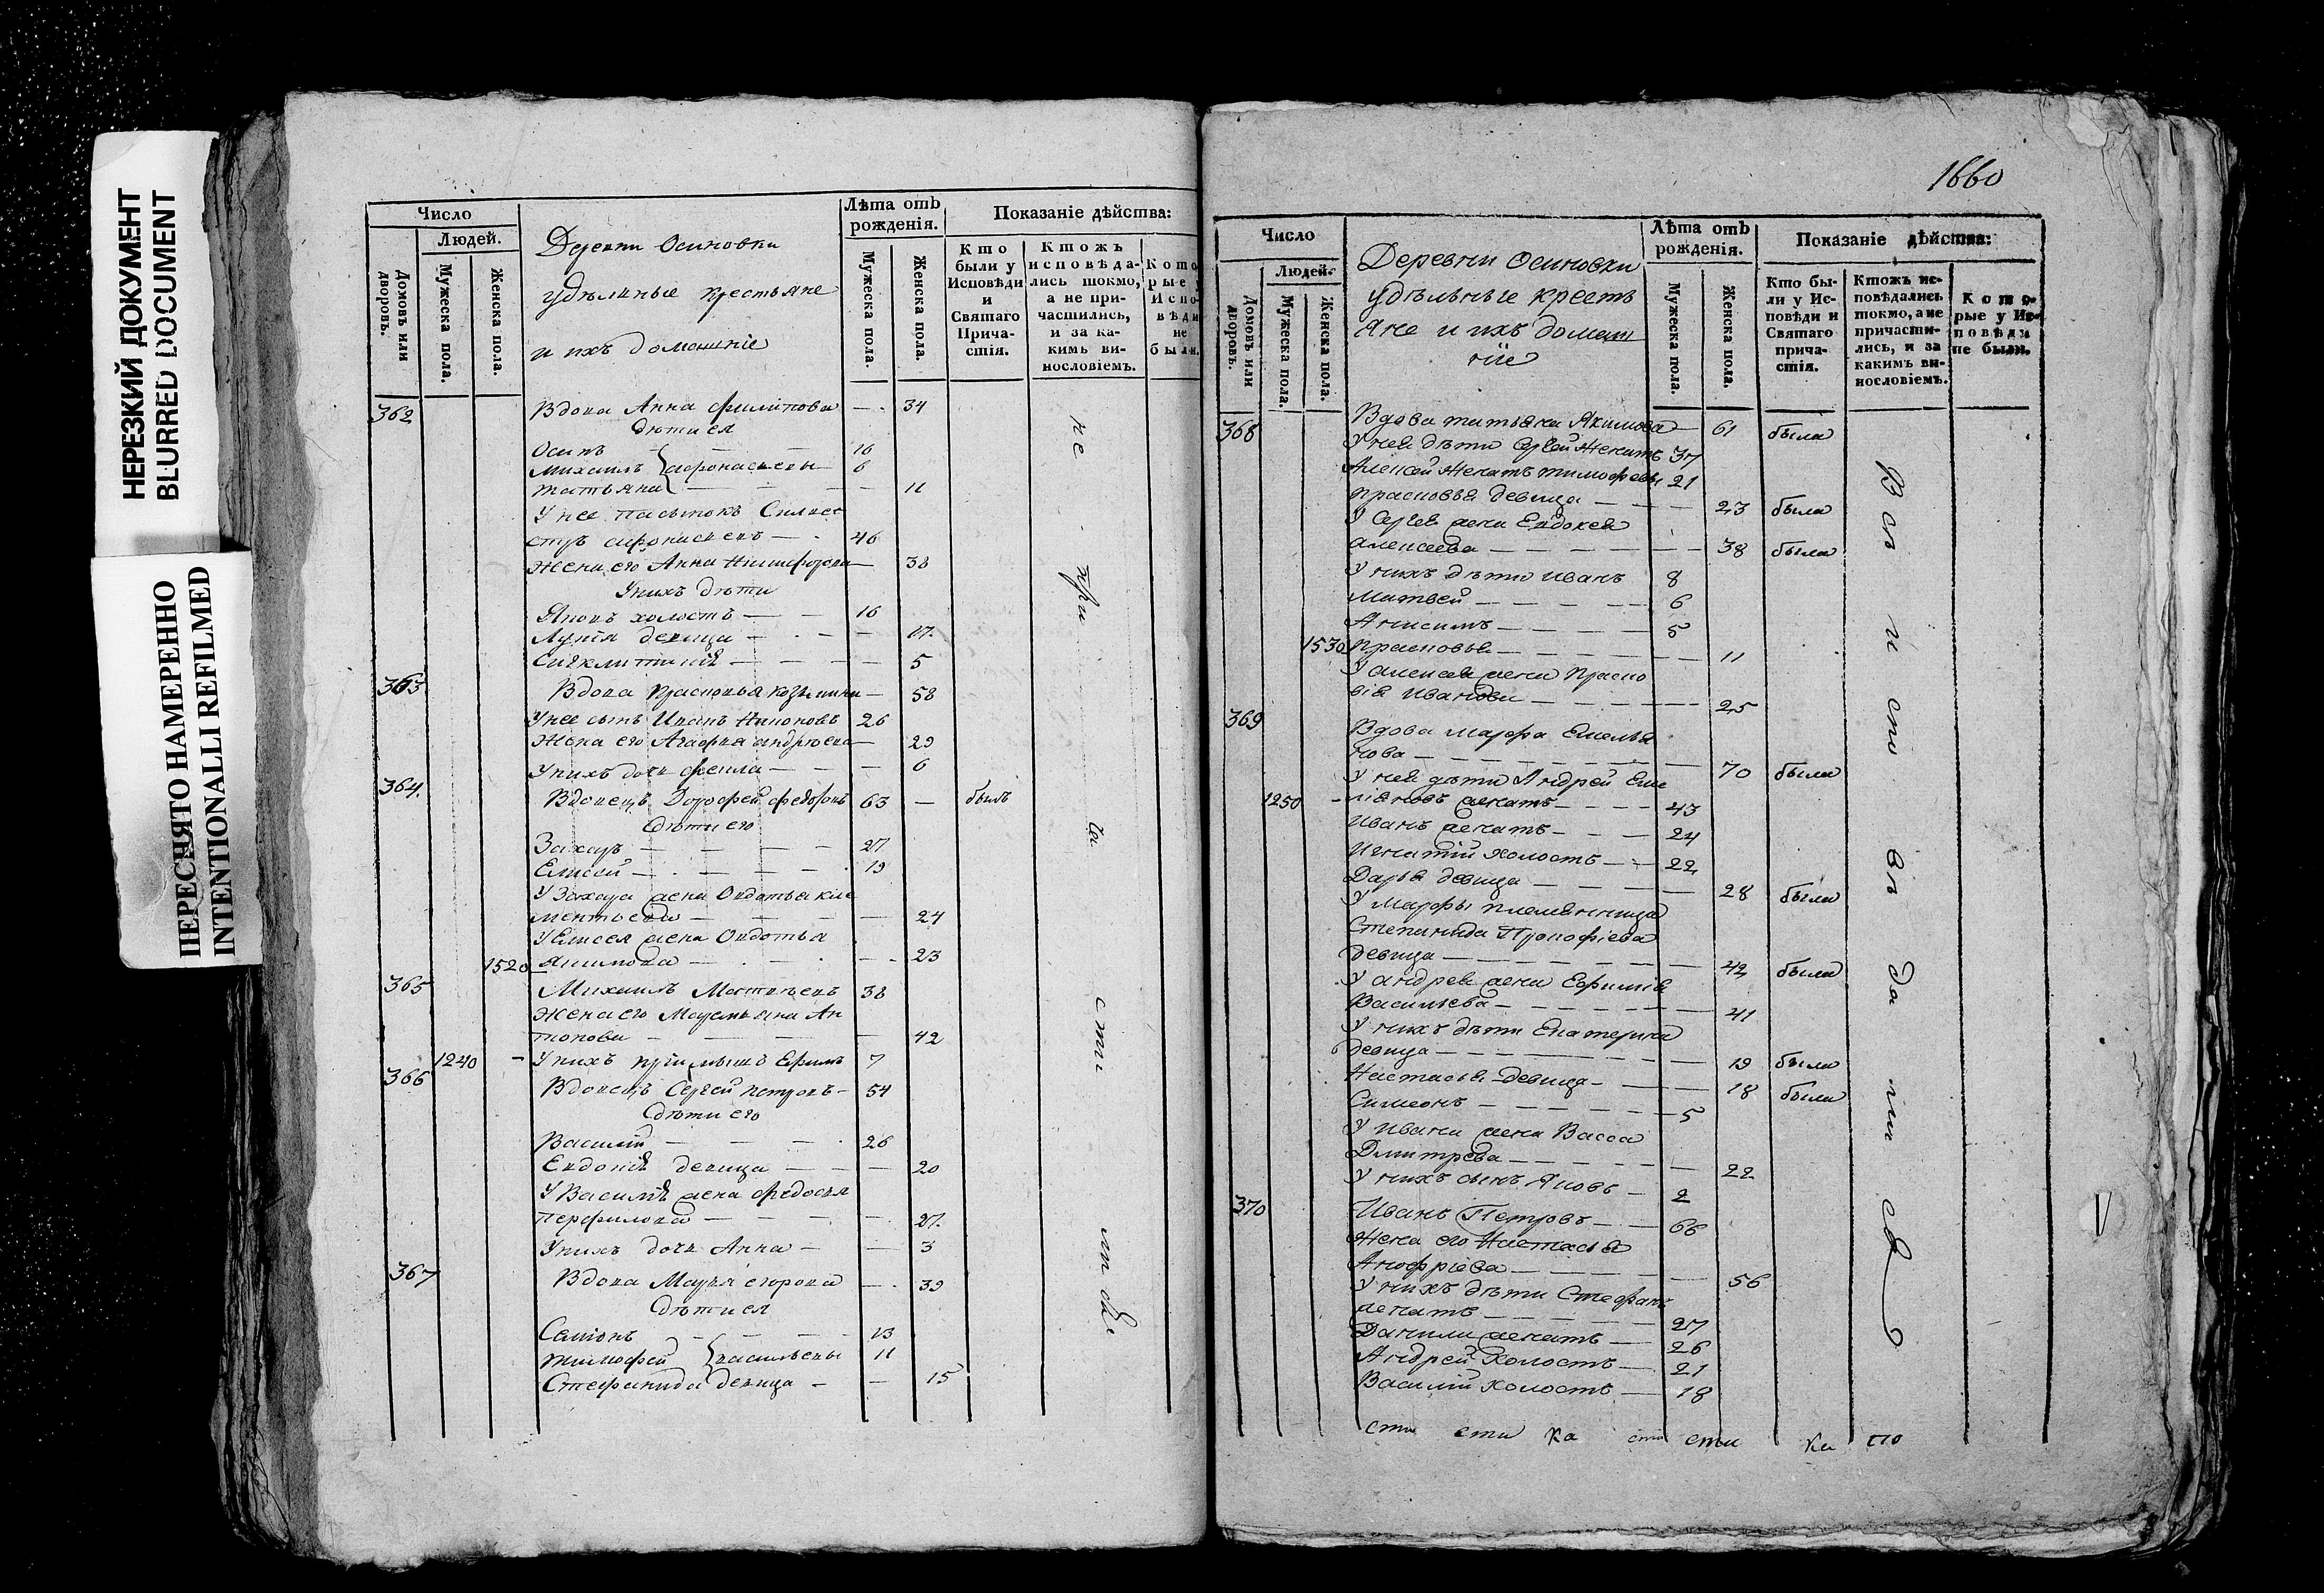 НЕРЕЗКИЙ ДОКУМЕНТ
BLURRED DOCUMENT
ПЕРЕСНЯТО НАМЕРЕННО
INTENTIONALLI REFILMED
Число
Людей.
Домовъ или дворовъ.
Мужеска пола.
Женска пола.
Деревни Осиновки
удѣльные крестьяне
и ихъ домашніе
Лѣта отъ рожденія.
Мужеска пола.
Женска пола.
Показаніе дѣйства:
Кто были у Исповѣди и Святаго Причастія.
Ктожъ исповѣдались токмо, а не причастились, и за какимъ винословіемъ.
Которые у Исповѣди не были.
362 Вдова Анна Филипова — 34
Дѣти ея
Осипъ 16
Михаилъ Афонасьевы 6
Татьяна — 11
У нее пасынокъ Силвес
стръ Афонасьевъ — 46
Жена его Анна Никифорова — 38
У нихъ дѣти
Яковъ холостъ — 16
девица — 17
Сигклитикія — 5
363 Вдова Прасковья Козьмина — 58
У нее сынъ Иванъ 26
Жена его Агафья Андреева — 29
У нихъ дочь Фекла — 6
364. Вдовецъ Дорофей Федоровъ 63 — былъ
Дѣти его
Захаръ — 27
Елисей — 19
У Захара жена Овдотья Кле
ментьева — 24
У Елисея жена Овдотья
1520 Якимова — 23
365 Михаилъ Матвѣевъ 38
Жена его Маремьяна Ан
тонова — 42
1240 - У нихъ приимышъ Ефимъ 7
366 Вдовецъ Сергей Петровъ - 54
Дѣти его
Василій — 26
Евдокія девица — 20
У Василія жена Федосья
Перфилова — 27.
У нихъ дочь Анна — 3
367 Вдова Марья Егорова — 39
Дѣти ея
Семіонъ 13
Тимофей Васильевы 11
Стефанида девица — 15
не при ча сти лися
1660
Число
Людей.
Домовъ или дворовъ.
Мужеска пола.
Женска пола.
Деревни Осиновки
удѣльные кресть
яне и ихъ домаш
ніе
Лѣта отъ рожденія.
Мужеска пола.
Женска пола.
Показаніе дѣйства:
Кто были у Исповѣди и Святаго причастія.
Ктожъ исповѣдались токмо, а не причастились, и за какимъ винословіемъ.
Которые у Исповѣди не были.
368 Вдова Татьяна Якимова — 61 была
У нея дѣти Сергей женатъ 37
Алексей женатъ Тимофевы 21
Прасковья девица — 23 была
У Сергея жена Евдокея
Алексеева — 38 была
У нихъ дѣти Иванъ 8
Матвей — 6
Анисимъ — 5
1530 Прасковья — 11
У Алексея жена Праско
вія Иванова — 25
369 Вдова Марфа Емелья
нова — 70 была
У нея дѣти Андрей Еме
1250 - ліяновъ женатъ — 43
Иванъ женатъ — 24
Игнатій холостъ — 22
Дарья девица — 28 была
У Марфы племянница
Степанида Прокофіева
девица — 42 была
У Андрея жена Ефимія
Васильева — 41
У нихъ дѣти Екатерина
девица — 19 была
Настасья девица — 18 была
Симеонъ — 5
У Ивана жена Васса
Дмитрева — 22
У нихъ сынъ Яковъ — 2
370 Иванъ Петровъ — 66
Жена его Настасья
Анофріева — 56
У нихъ дѣти Стефанъ
женатъ — 27
Данила женатъ — 26
Андрей холостъ — 21
Василій холостъ — 18
Всѣ и спо вѣ да ли ся
сти сти ка сти сти ка по